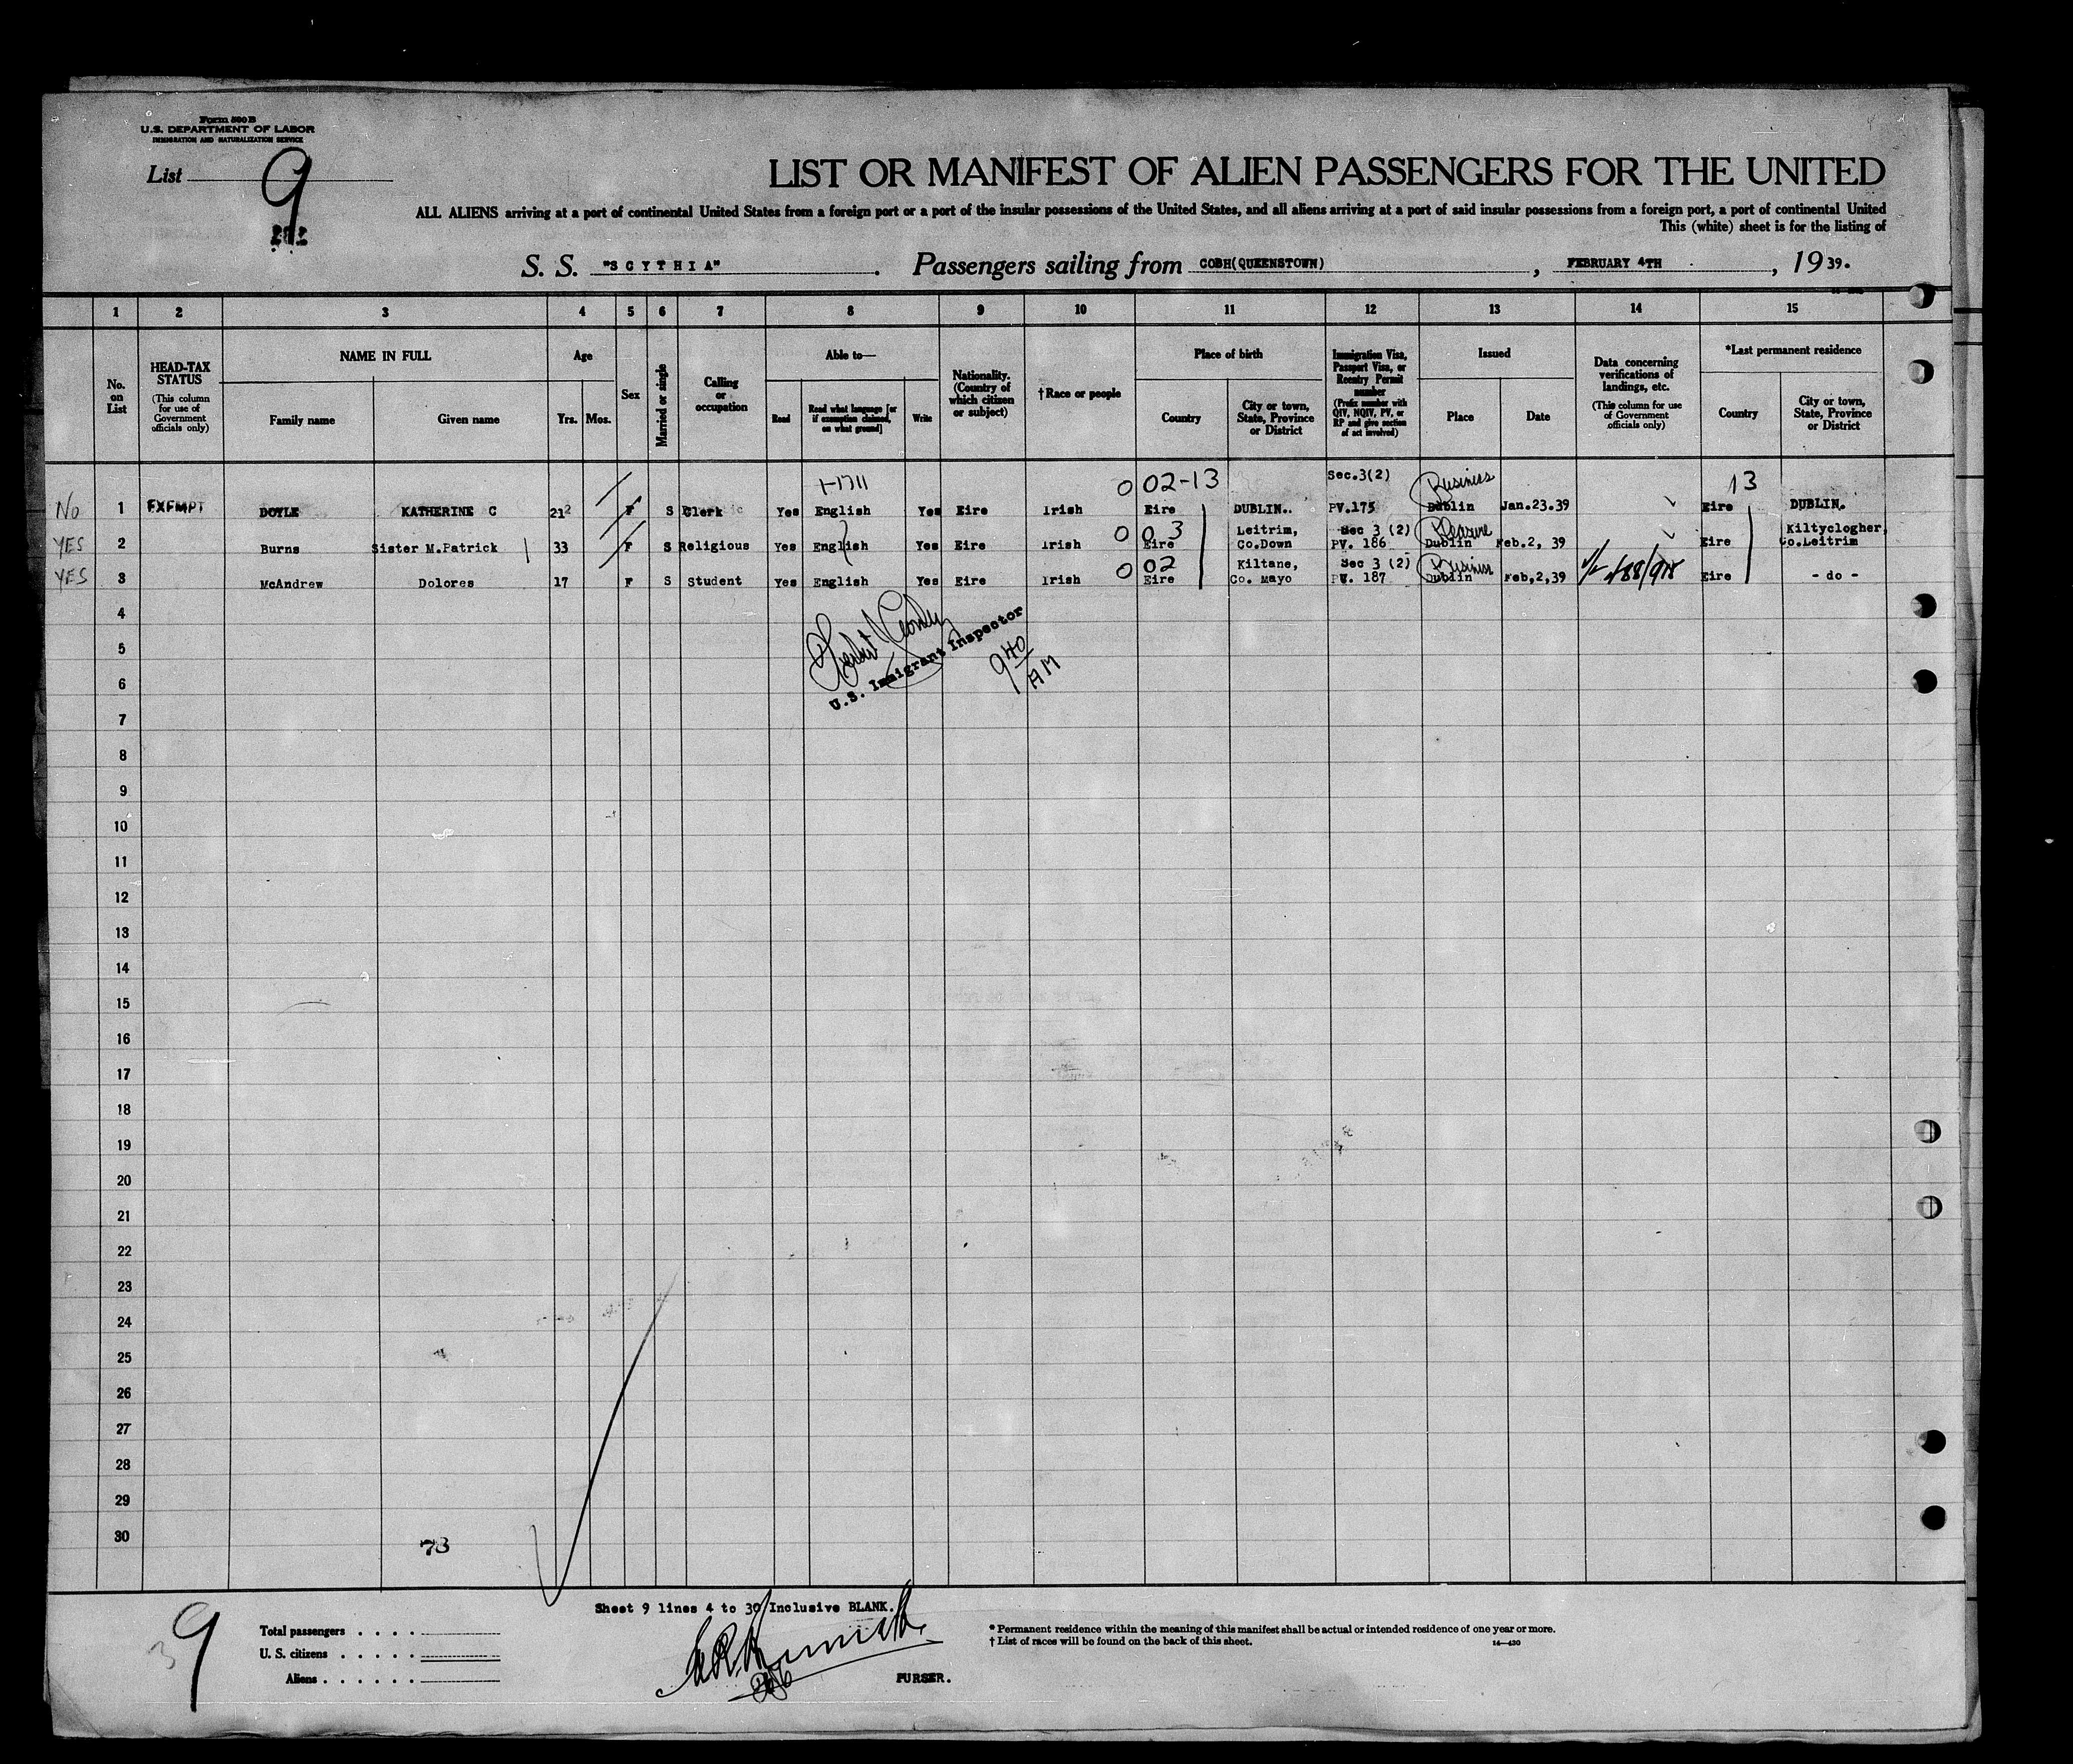 Form 500 B
U.S. DEPARTMENT OF LABOR
IMMIGRATION AND NATURALIZATION SERVICE
List 9
LIST OR MANIFEST OF ALIEN PASSENGERS FOR THE UNITED
ALL ALIENS arriving at a port of continental United States from a foreign port or a port of the insular possessions of the United States, and all aliens arriving at a port of said insular possessions from a foreign port, a port of continental United
This (white) sheet is for the listing of
S. S. "SCYTHIA". Passengers sailing from COBH(QUEENSTOWN), FEBRUARY 4TH, 1939.
1 2 3 4 5 6 7 8 9 10 11 12 13 14 15
No. on List
HEAD-TAX STATUS
(This column for use of Government officials only)
NAME IN FULL
Family name
Given name
Age
Yrs.
Mos.
Sex
Married or single
Calling or occupation
Able to—
Read
Read what language [or if exemption claimed, on what ground]
Write
Nationality. (Country of which citizen or subject)
†Race or people
Place of birth
Country
City or town, State, Province or District
Immigration Visa, Passport Visa, or Reentry Permit number
(Prefix number with QIV, NQIV, PV, or RP and give section of act involved)
Issued
Place
Date
Data concerning verifications of landings, etc.
(This column for use of Government officials only)
*Last permanent residence
Country
City or town, State, Province or District
1-1711 0 02-13 Sec.3(2) Business 13
No 1 EXEMPT DOYLE KATHERINE C 21 F S Clerk Yes English Yes Eire Irish Eire DUBLIN.. PV.175 Dublin Jan.23.39 Eire DUBLIN.
0 03 Leitrim, Sec 3 (2) Pleasure Kiltyclogher,
YES 2 Burns Sister M.Patrick 33 F S Religious Yes English Yes Eire Irish Eire Co.Down PV. 186 Dublin Feb.2, 39 Eire Co.Leitrim
0 02 Kiltane, Sec 3 (2) Business
YES 3 McAndrew Dolores 17 F S Student Yes English Yes Eire Irish Eire Co. Mayo PV. 187 Dublin Feb,2,39 Eire - do -
4
5
U.S. Immigrant Inspector
940 AM
6
7
8
9
10
11
12
13
14
15
16
17
18
19
20
21
22
23
24
25
26
27
28
29
30
73
Sheet 9 lines 4 to 30 Inclusive BLANK.
9
Total passengers . . . .
U. S. citizens . . . . .
Aliens . . . . . .
PURSER.
* Permanent residence within the meaning of this manifest shall be actual or intended residence of one year or more.
† List of races will be found on the back of this sheet.
14—430